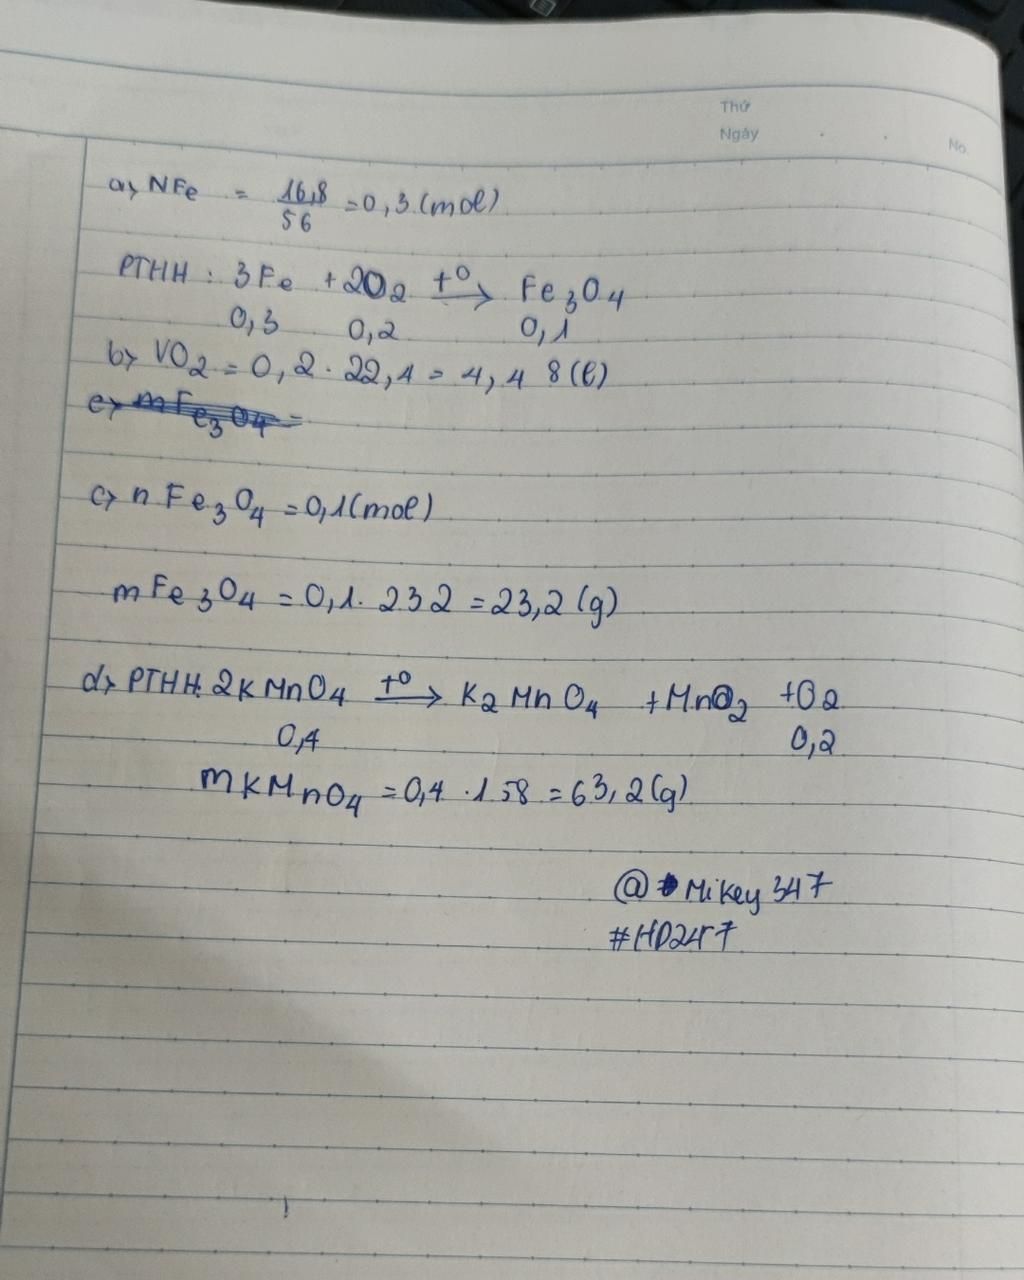 Thứ
Ngày
No.
a, NFe = 16,8/56 = 0,3 (mol)
PTHH : 3Fe + 2O2 t° → Fe3O4
0,3 0,2 0,1
b, VO2 = 0,2 . 22,4 = 4,48 (l)
c, mFe3O4 =
c, nFe3O4 = 0,1 (mol)
mFe3O4 = 0,1 . 232 = 23,2 (g)
d, PTHH: 2KMnO4 t° → K2MnO4 + MnO2 + O2
0,4 0,2
mKMnO4 = 0,4 . 158 = 63,2 (g)
@ Mikey 347
#HD247